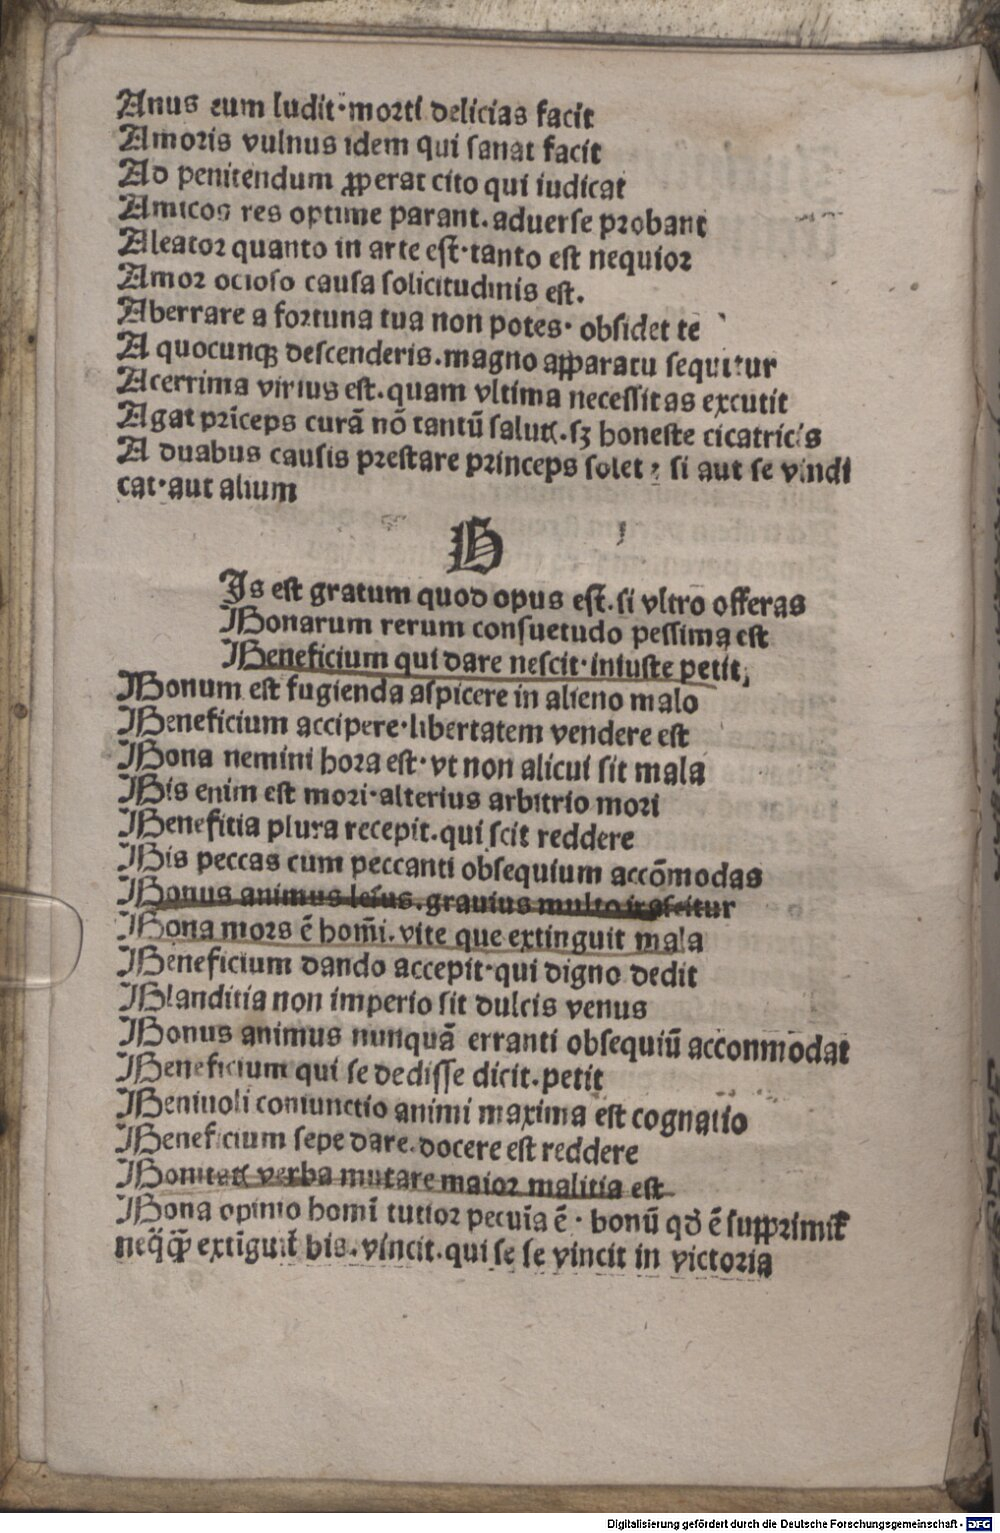 Anus cum ludit·morti delicias facit
Amoris vulnus idem qui sanat facit
Ad penitendum ꝓperat cito qui iudicat
Amicos res optime parant.aduerse probant
Aleator quanto in arte est·tanto est nequior
Amor ocioso causa solicitudinis est.
Aberrare a fortuna tua non potes· obsidet te
A quocunqꝫ descenderis.magno apparatu sequitur
Acerrima virtus est.quam vltima necessitas excutit
Agat prīceps curā nō tantū salutꝭ.sꝫ honeste cicatricis
A duabus causis prestare princeps solet : si aut se vindi
cat·aut alium
B
Is est gratum quod opus est.si vltro offeras
Bonarum rerum consuetudo pessima est
Beneficium qui dare nescit·iniuste petit,
Bonum est fugienda aspicere in alieno malo
Beneficium accipere·libertatem vendere est
Bona nemini hora est·vt non alicui sit mala
Bis enim est mori·alterius arbitrio mori
Benefitia plura recepit.qui scit reddere
Bis peccas cum peccanti obsequium accōmodas
Bonus animus lesus.grauius multo irascitur
Bona mors ē homī.vite que extinguit mala
Beneficium dando accepit·qui digno dedit
Blanditia non imperio fit dulcis venus
Bonus animus nunquā erranti obsequiū acconmodat
Beneficium qui se dedisse dicit.petit
Beniuoli coniunctio animi maxima est cognatio
Beneficium sepe dare.docere est reddere
Bonitatꝭ verba mutare maior malitia est
Bona opinio homī tutior pecuīa ē · bonū qd̄ ē supprimit̄
neq̄q̄ȝ extīguit̄ bis.vincit.qui se se vincit in victoria
Digitalisierung gefördert durch die Deutsche Forschungsgemeinschaft - DFG